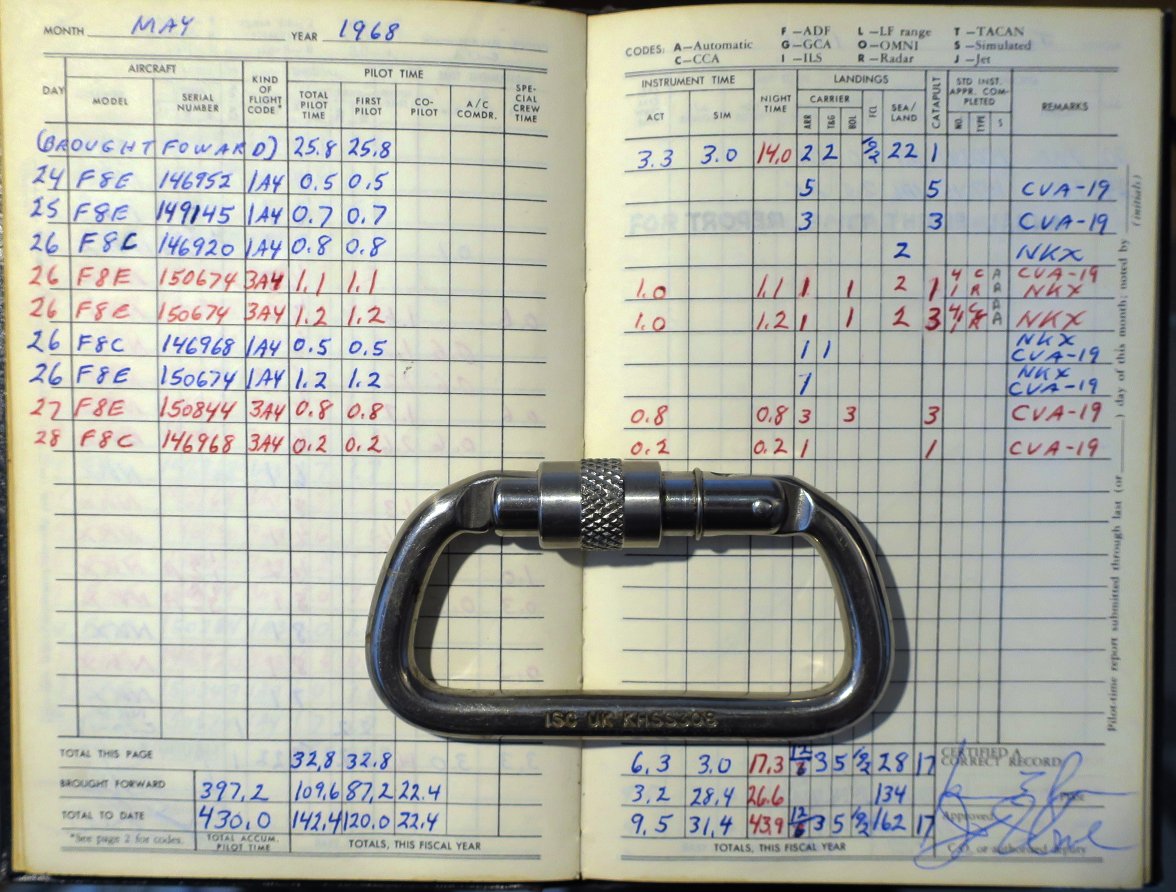 MONTH MAY YEAR 1968
CODES: A—Automatic F—ADF L—LF range T—TACAN
G—GCA O—OMNI S—Simulated
C—CCA I—ILS R—Radar J—Jet
DAY AIRCRAFT KIND OF FLIGHT CODE* PILOT TIME SPE- CIAL CREW TIME
MODEL SERIAL NUMBER TOTAL PILOT TIME FIRST PILOT CO- PILOT A/C COMDR.
INSTRUMENT TIME NIGHT TIME LANDINGS CATAPULT STD INST. APPR. COM- PLETED REMARKS
ACT SIM CARRIER FCL SEA/ LAND NO. TYPE S
ARR T&G BOL
(BROUGHT FOWARD) 25.8 25.8 3.3 3.0 14.0 2 2 22 1
24 F8E 146952 1A4 0.5 0.5 5 5 CVA-19
25 F8E 149145 1A4 0.7 0.7 3 3 CVA-19
26 F8C 146920 1A4 0.8 0.8 2 NKX
26 F8E 150674 3A4 1.1 1.1 1.0 1.1 1 1 2 1 4 C A CVA-19
1 R A NKX
26 F8E 150674 3A4 1.2 1.2 1.0 1.2 1 1 2 3 NKX
26 F8C 146968 1A4 0.5 0.5 1 1 NKX
CVA-19
26 F8E 150674 1A4 1.2 1.2 1 NKX
CVA-19
27 F8E 150844 3A4 0.8 0.8 0.8 0.8 3 3 3 CVA-19
28 F8C 146968 3A4 0.2 0.2 0.2 0.2 1 1 CVA-19
ISC UK KHSS308
TOTAL THIS PAGE 32.8 32.8 6.3 3.0 17.3 3 5 28 17
BROUGHT FORWARD 397.2 109.6 87.2 22.4 3.2 28.4 26.6 134
TOTAL TO DATE 430.0 142.4 120.0 22.4 9.5 31.4 43.9 3 5 162 17
*See page 2 for codes. TOTAL ACCUM. PILOT TIME TOTALS, THIS FISCAL YEAR
TOTALS, THIS FISCAL YEAR
CERTIFIED A
CORRECT RECORD
Approved
C.O. or authorized deputy
Pilot-time report submitted through last (or ) day of this month; noted by (initials)